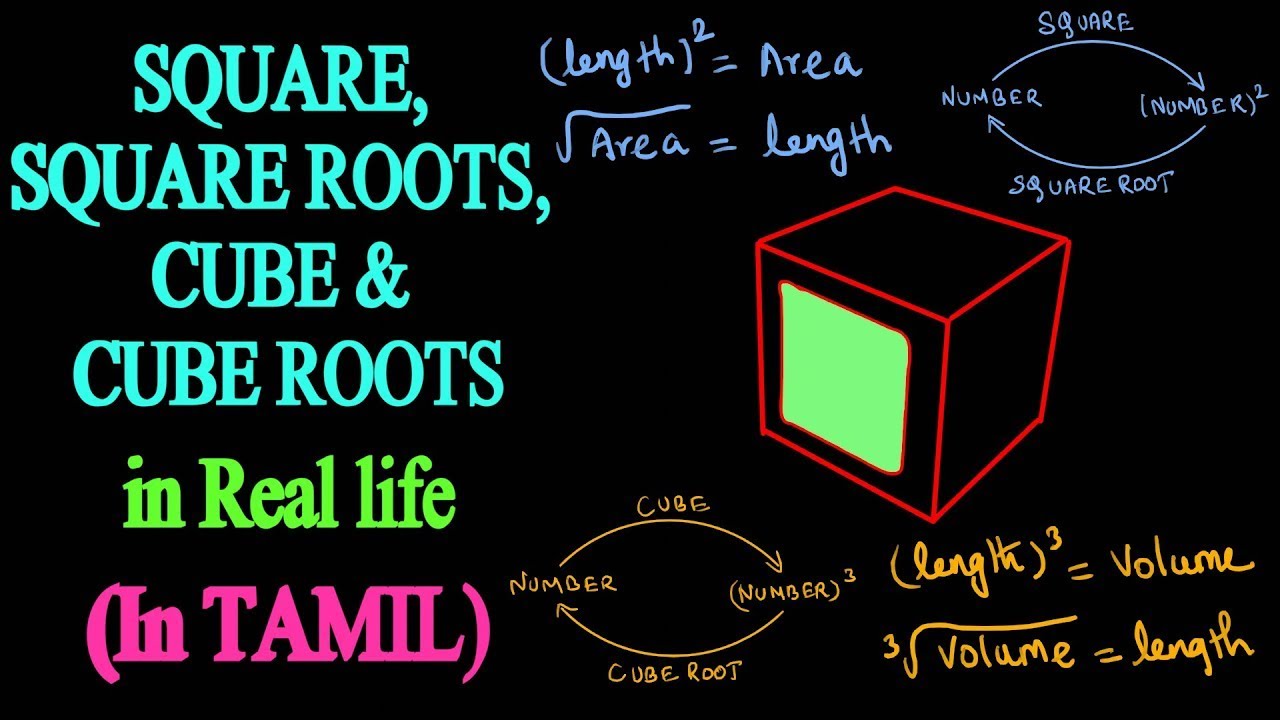 SQUARE,
SQUARE ROOTS,
CUBE &
CUBE ROOTS
in Real life
(In TAMIL)
(length)² = Area
√Area = length
SQUARE
NUMBER
(NUMBER)²
SQUARE ROOT
CUBE
NUMBER
(NUMBER)³
CUBE ROOT
(length)³ = Volume
³√Volume = length